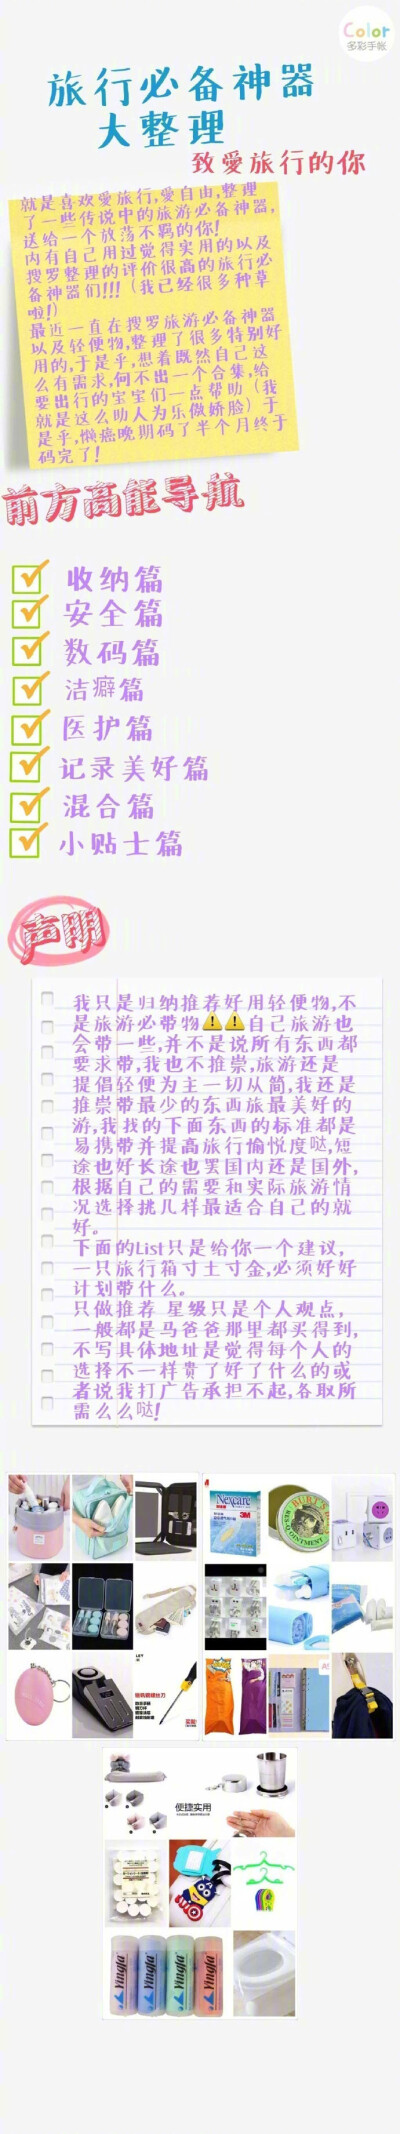 Color
多彩手帐
旅行必备神器
大整理
致爱旅行的你
就是喜欢爱旅行,爱自由,整理
了一些传说中的旅游必备神器,
送给一个放荡不羁的你!
内有自己用过觉得实用的以及
搜罗整理的评价很高的旅行必
备神器们!!!(我已经很多种草
啦!)
最近一直在搜罗旅游必备神器
以及轻便物,整理了很多特别好
用的,于是乎,想着既然自己这
么有需求,何不出一个合集,给
要出行的宝宝们一点帮助(我
就是这么助人为乐傲娇脸)于
是乎,懒癌晚期码了半个月终于
码完了!
前方高能导航
收纳篇
安全篇
数码篇
洁癖篇
医护篇
记录美好篇
混合篇
小贴士篇
声明
我只是归纳推荐好用轻便物,不
是旅游必带物⚠️⚠️自己旅游也
会带一些,并不是说所有东西都
要求带,我也不推崇,旅游还是
提倡轻便为主一切从简,我还是
推崇带最少的东西旅最美好的
游,我找的下面东西的标准都是
易携带并提高旅行愉悦度哒,短
途也好长途也罢国内还是国外,
根据自己的需要和实际旅游情
况选择挑几样最适合自己的就
好。
下面的List只是给你一个建议,
一只旅行箱寸土寸金,必须好好
计划带什么。
只做推荐 星级只是个人观点,
一般都是马爸爸那里都买得到,
不写具体地址是觉得每个人的
选择不一样贵了好了什么的或
者说我打广告承担不起,各取所
需么么哒!
Nexcare
3M
BURT'S BEES
RES-Q OINTMENT
便捷实用
Yingfa
Yingfa
Yingfa
Yingfa